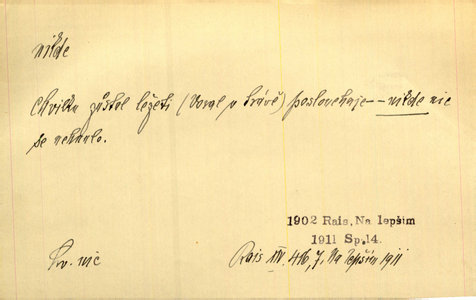 nikde
Chvilku zůstal ležeti (Voral v trávě) poslouchaje-- nikde nic
se nehnulo.
1902 Rais, Na lepším
1911 Sp.14.
Sv. nič
Rais XIV. 416, 7, Na lepším 1911